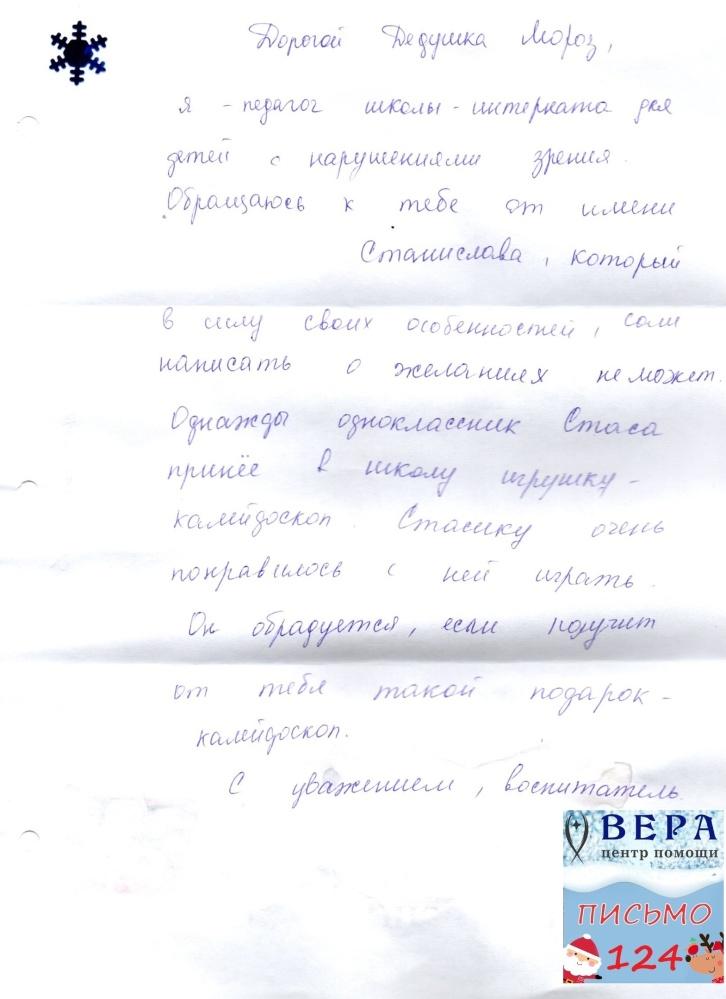 Дорогой Дедушка Мороз,
я - педагог школы - интерната для
детей с нарушениями зрения.
Обращаюсь к тебе от имени
Станислава, который
в силу своих особенностей, сам
написать о желаниях не может.
Однажды одноклассник Стаса
принёс в школу игрушку -
калейдоскоп. Стасику очень
понравилось с ней играть.
Он обрадуется, если получит
от тебя такой подарок -
калейдоскоп.
С уважением, воспитатель
ВЕРА
центр помощи
ПИСЬМО
124